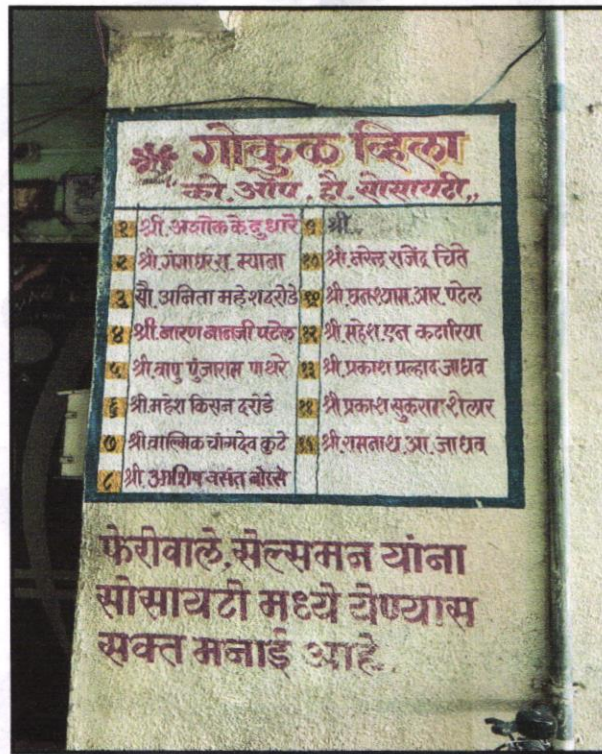 गोकुळ व्हिला
को. ऑप. हौ. सोसायटी,,
१ श्री. अशोक के दुधारे
२ श्री. गंगाधर रा. म्याना
३ सौ. अनिता महेश दरोडे
४ श्री. नारण नानजी पटेल
५ श्री. बापु पुंजाराम पाथरे
६ श्री. महेश किसन दरोडे
७ श्री वाल्मिक चांगदेव कुटे
८ श्री. आशिष वसंत बोरसे
९ श्री.
१० श्री. नरेन्द्र राजेंद्र चिते
११ श्री. घनश्याम. आर. पटेल
१२ श्री. महेश. एन कटारिया
१३ श्री. प्रकाश प्रल्हाद जाधव
१४ श्री. प्रकाश सुकराम शेलार
१५ श्री. रामनाथ. आ. जाधव
फेरीवाले, सेल्समन यांना
सोसायटी मध्ये येण्यास
सक्त मनाई आहे.